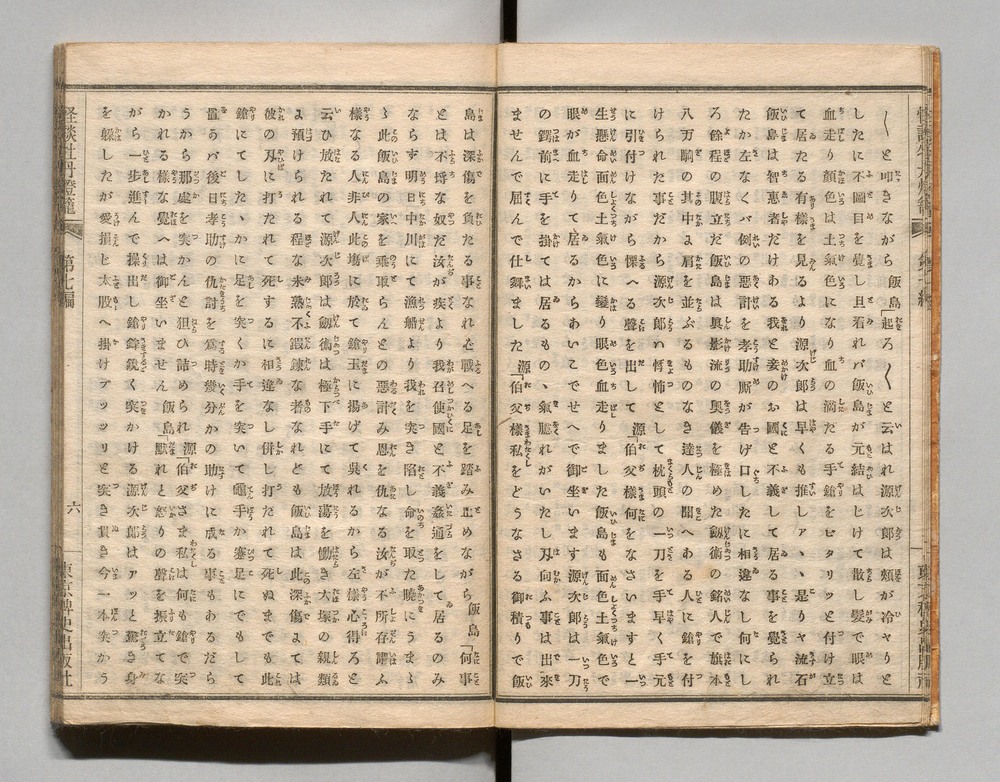 怪談牡丹燈籠 第七編
〳〵と叩きながら 飯島「起ろ 〳〵と云はれ源次郎は頬が冷やりと
したに不圖目を覺し且看れバ飯島が元結はじけて散し髪で眼は
血走り顔色は土氣色になり血の滴たる手鎗をピタリッと付け立
て居たる有樣を見るより源次郎は早くも推しアヽ是りャ流石
飯島は智惠者だけある我と妾のお國と不義して居る事を覺られ
たか左なくバ例の惡計を孝助厮が告げ口したに相違なし何にし
ろ餘程の腹立だ飯島は眞影流の奥儀を極めた劔術の銘人で旗本
八万騎の其中ょ肩を並ぶるものなき達人の聞へある人に鎗を付
けられた事だから源次郎ハ恟怖として枕頭の一刀を手早く手元
に引付けながら慄へる聲を出して 源「伯父樣何をなさいますと一
生懸命面色土氣色に變り眼色血走りました飯島も面色土氣色で
眼が血走りて居るからあいこでせへで御坐います源次郎は一刀
の鍔前に手を掛ては居るものヽ氣臆れがいたし刃向ふ事は出來
ませんで屈んで仕舞ました 源「伯父樣私をどうなさる御積りで 飯
島は深傷を負たる事なれバ戰へる足を踏み止めながら 飯島「何事
とは不埓な奴だ汝が疾より我召使國と不義姦通をして居るのみ
ならず明日中川にて漁船より我を突き陷し命を取た曉にうま
〳〵此飯島の家を乘取らんとの惡計み恩を仇なる汝が不所存謂ふ
樣なる人非人此塲に於て鎗玉に揚げて呉れるから左樣心得ろと
云ひ放たれて源次郎は劔術は極下手にて放蕩を働き大塚の親類
ょ預けられる程な未熟不鍛錬な者なれども飯島は此深傷ょては
彼の刃に打たれて死するに相違なし併し打たれて死ぬまでも此
鎗にてしたヽかに足を突くか手を突いて龜手か蹇足にでもして
置るバ後日孝助の仇討を爲時幾分かの助けに成る事もあるだら
うから那處を突かんと狙ひ詰められ 源「伯父さま私は何も鎗で突
かれる樣な覺へは御坐いません 飯島「默れと怒りの聲を振立てな
がら一歩進んで操出し鎗鋒鋭く突かける源次郎はアッと驚き身
を躱したが愛損じ太股へ掛けブッツリと突き貫き今一本突かう
怪談牡丹燈籠 第七編 六 東京稗史出版社